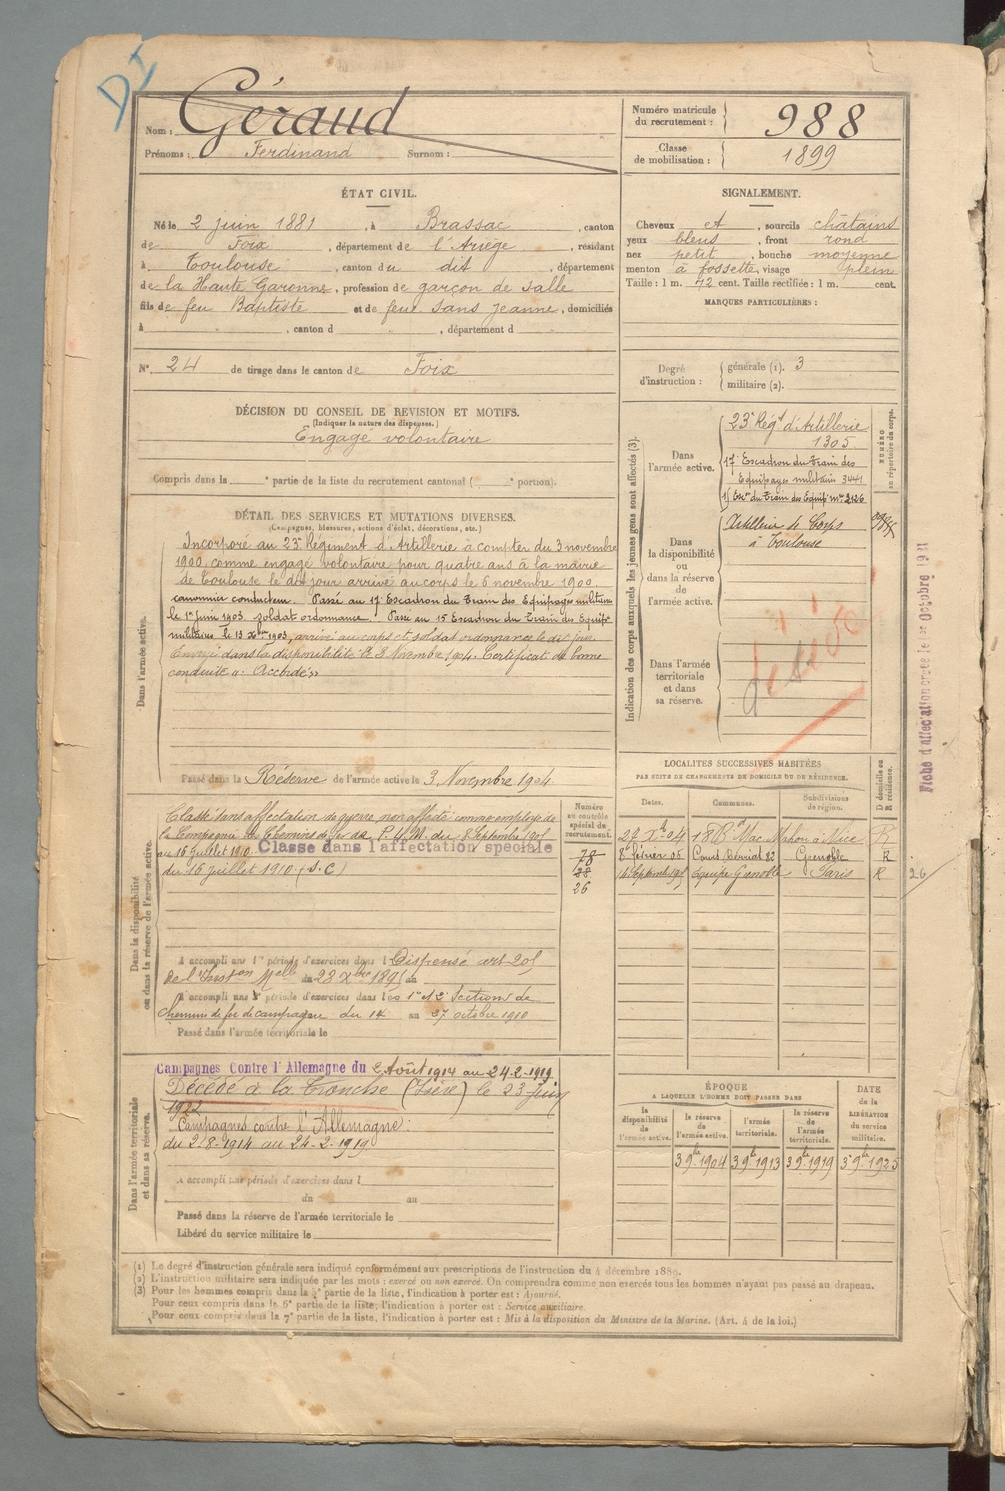 DI
Nom : Géraud
Prénoms : Ferdinand Surnom :
Numéro matricule du recrutement : 988
Classe de mobilisation : 1899
ÉTAT CIVIL.
Né le 2 juin 1881, à Brassac, canton
de Foix, département de l'Ariège, résidant
à Toulouse, canton du dit, département
de la Haute Garonne, profession de garçon de salle
fils de feu Baptiste et de feue Sans Jeanne, domiciliés
à , canton d , département d
N° 24 de tirage dans le canton de Foix
SIGNALEMENT.
Cheveux et , sourcils châtains
yeux bleus , front rond
nez petit , bouche moyenne
menton à fossette, visage plein
Taille : 1 m. 72 cent. Taille rectifiée : 1 m. cent.
MARQUES PARTICULIÈRES :
Degré d'instruction : générale (1). 3
militaire (2).
DÉCISION DU CONSEIL DE REVISION ET MOTIFS.
(Indiquer la nature des dispenses.)
Engagé volontaire
Compris dans la ° partie de la liste du recrutement cantonal ( ° portion).
DÉTAIL DES SERVICES ET MUTATIONS DIVERSES.
(Campagnes, blessures, actions d'éclat, décorations, etc.)
Dans l'armée active.
Incorporé au 23e Régiment d'Artillerie à compter du 3 novembre
1900, comme engagé volontaire pour quatre ans à la mairie
de Toulouse le dit jour arrivé au corps le 6 novembre 1900,
canonnier conducteur. Passé au 17 Escadron du Train des Equipages militaires
le 1er juin 1903 soldat ordonnance. Passé au 15 Escadron du Train des Equip
militaires le 13 Xbre 1903, arrivé au corps et soldat ordonnance le dit jour
Envoyé dans la disponibilité le 3 Novembre 1904. Certificat de bonne
conduite "Accordé"
Passé dans la Réserve de l'armée active le 3 Novembre 1904
Indication des corps auxquels les jeunes gens sont affectés (3).
NUMÉRO au répertoire du corps.
Dans l'armée active.
23e Régt d'Artillerie
1305
17 Escadron du Train des
Equipages militaires 3441
Dans la disponibilité ou dans la réserve de l'armée active.
Artillerie de Corps
à Toulouse
Dans l'armée territoriale et dans sa réserve.
Fiche d'affectation créée le 1er Octobre 1921
LOCALITÉS SUCCESSIVES HABITÉES
PAR SUITE DE CHANGEMENTS DE DOMICILE OU DE RÉSIDENCE.
Dates. Communes. Subdivisions de région. D domicile ou R résidence.
27 Xbre 04 18 Bd Mac Mahon à Nice R
8 février 05 Cours Bérriat 82 Grenoble R
Equipe Grenoble Paris R 26
Dans la disponibilité ou dans la réserve de l'armée active.
Numéro au contrôle spécial du recrutement.
78
28
26
Classé sans affectation de guerre non affecté comme employé de
la Compagnie des Chemins de fer de P.L.M. du 8 Septembre 1905
au 16 juillet 1910 Classe dans l'affectation spéciale
du 16 juillet 1910 (S.C)
A accompli une 1re période d'exercices dans l Dispensé art 205
de l'Inston Melle du 28 Xbre 1895 au
A accompli une 2e période d'exercices dans les 1re et 2e Sections de
chemins de fer de campagne du 14 au 27 octobre 1910
Passé dans l'armée territoriale le
Dans l'armée territoriale et dans sa réserve.
Campagnes Contre l'Allemagne du 2 Août 1914 au 24-2-1919
Décédé à la Tronche (Isère) le 23 Juin
1922
Campagnes contre l'Allemagne :
du 2-8-1914 au 24-2-1919
A accompli une période d'exercices dans l
du au
Passé dans la réserve de l'armée territoriale le
Libéré du service militaire le
ÉPOQUE
A LAQUELLE L'HOMME DOIT PASSER DANS
la disponibilité de l'armée active.
la réserve de l'armée active.
l'armée territoriale.
la réserve de l'armée territoriale.
DATE de la LIBÉRATION du service militaire.
3 9bre 1904 3 9bre 1913 3 9bre 1919 3 9bre 1925
(1) Le degré d'instruction générale sera indiqué conformément aux prescriptions de l'instruction du 4 décembre 1889.
(2) L'instruction militaire sera indiquée par les mots : exercé ou non exercé. On comprendra comme non exercés tous les hommes n'ayant pas passé au drapeau.
(3) Pour les hommes compris dans la 3e partie de la liste, l'indication à porter est : Ajourné.
Pour ceux compris dans le 6e partie de la liste, l'indication à porter est : Service auxiliaire.
Pour ceux compris dans la 7e partie de la liste, l'indication à porter est : Mis à la disposition du Ministre de la Marine. (Art. 4 de la loi.)